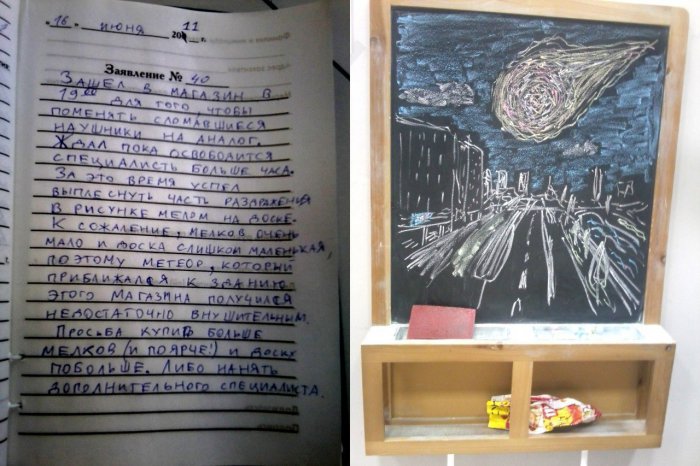 " 16 " июня 2011 г.
Заявление № 40
Зашел в магазин в
19⁰⁰ для того, чтобы
поменять сломавшиеся
наушники на аналог.
Ждал пока освободится
специалисть больше часа.
За это время успел
выплеснуть часть раздраженья
в рисунке мелом на доске.
К сожалению, мелков очень
мало и доска слишком маленькая,
поэтому метеор, который
приближался к зданию
этого магазина получился
недостаточно внушительным.
Просьба купить больше
мелков (и поярче!) и доску
побольше. Либо нанять
дополнительного специалиста.